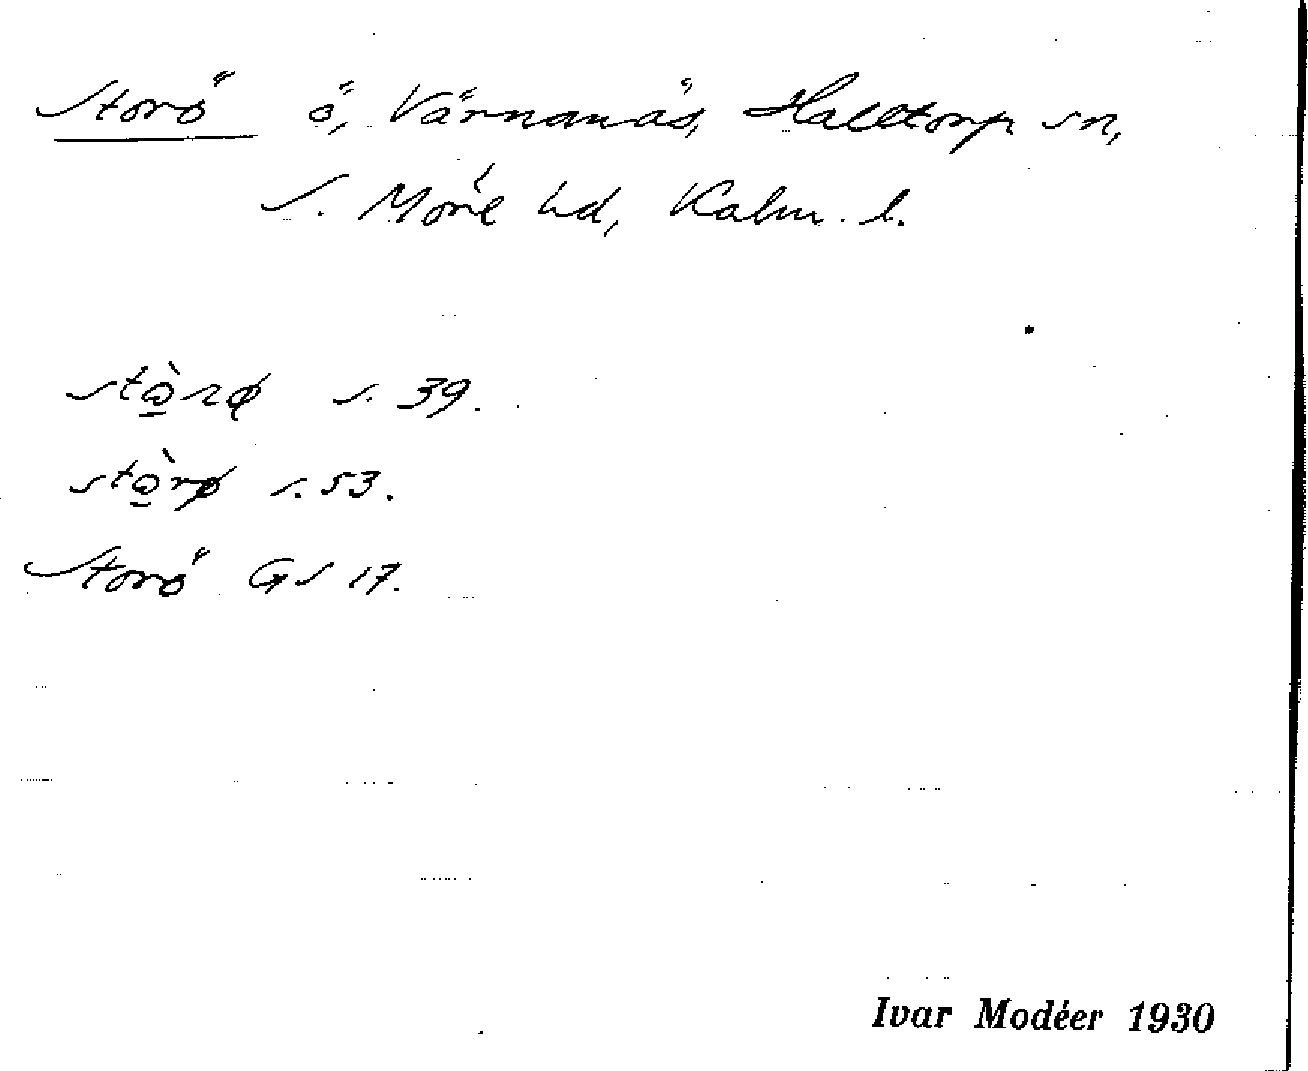 Storö ö, Värnanäs, Halltorp sn,
S. Möre hd, Kalm. l.
stò̱rø s. 39.
stò̱rø s. 53.
Storö GS 17.
Ivar Modéer 1930